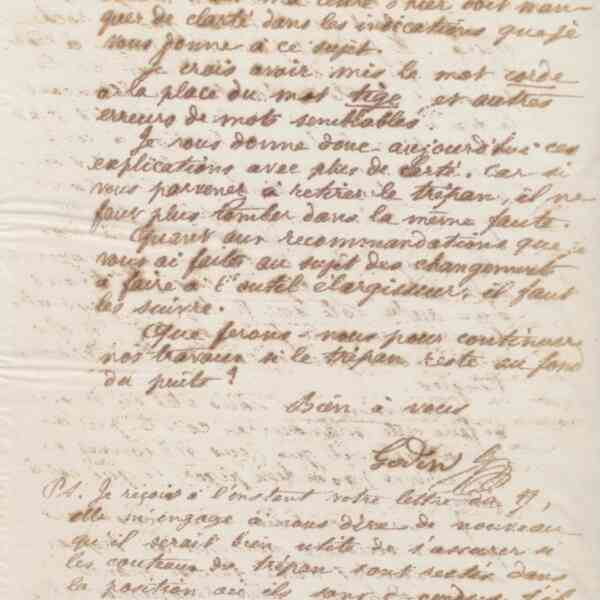 ma lettre d'hier doit man-
quer de clarté dans les indications que je
vous donne à ce sujet.
Je crois avoir mis le mot corde
à la place du mot tige et autres
erreurs de mots semblables.
Je vous donne donc aujourd'hui ces
explications avec plus de clarté. Car si
vous parvenez à retirer le trépan, il ne
faut plus tomber dans la même faute.
Quant aux recommandations que je
vous ai faites au sujet des changements
à faire à l'outil élargisseur, il faut
les suivre.
Que ferons-nous pour continuer
nos travaux si le trépan reste au fond
du puits ?
Bien à vous
Godin
P.S. Je reçois à l'instant votre lettre du
elle m'engage à vous dire de nouveau
qu'il serait bien utile de s'assurer si
les couteaux du trépan sont restés dans
la position où ils sont